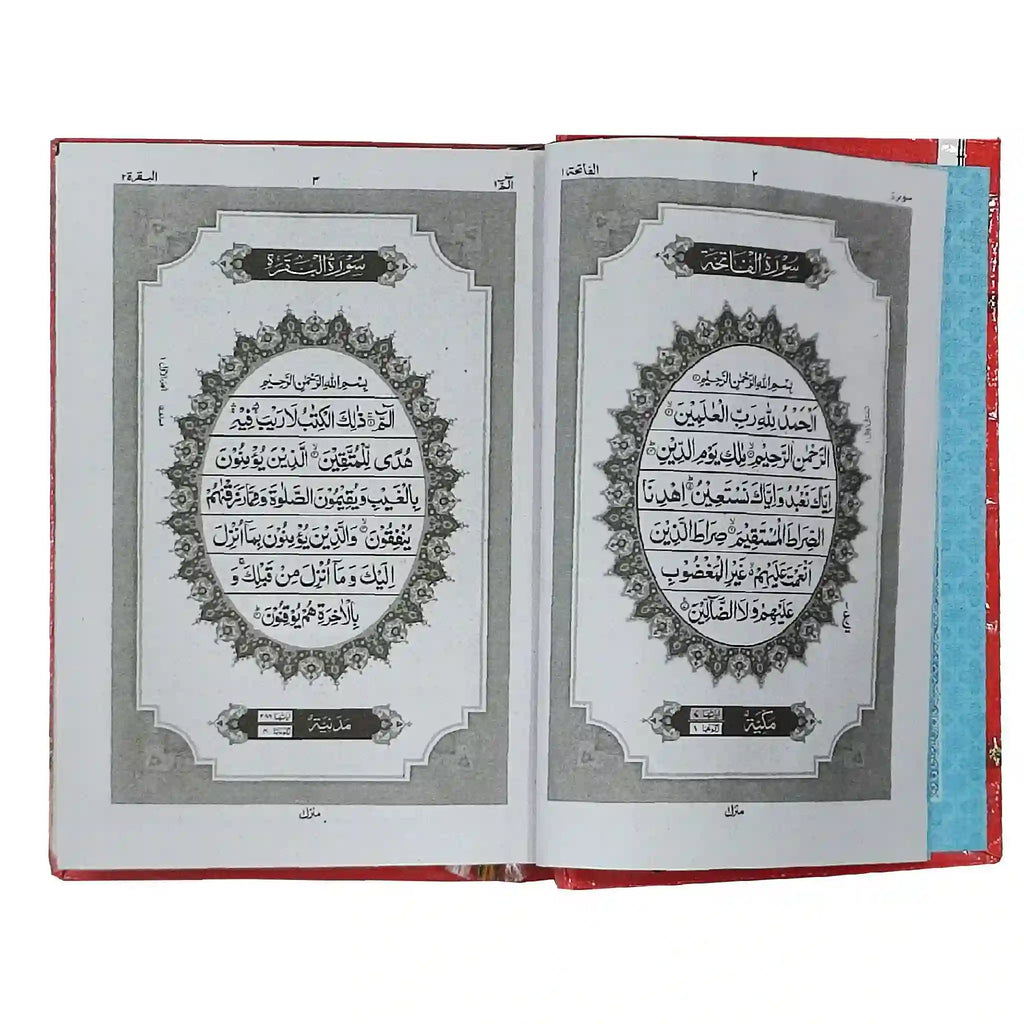 الفاتحة ١
٢
سورة
سُوْرَةُ الْفَاتِحَةِ
بِسْمِ اللهِ الرَّحْمٰنِ الرَّحِيْمِ
اَلْحَمْدُ لِلّٰهِ رَبِّ الْعٰلَمِيْنَ
الرَّحْمٰنِ الرَّحِيْمِ مٰلِكِ يَوْمِ الدِّيْنِ
اِيَّاكَ نَعْبُدُ وَاِيَّاكَ نَسْتَعِيْنُ اِهْدِنَا
الصِّرَاطَ الْمُسْتَقِيْمَ صِرَاطَ الَّذِيْنَ
اَنْعَمْتَ عَلَيْهِمْ غَيْرِ الْمَغْضُوْبِ
عَلَيْهِمْ وَلَا الضَّآلِّيْنَ
مَكِّيَّةٌ
اٰيَاتُهَا ٧
رُكُوْعُهَا ١
منزل
البقرة ٢
٣
الٓمّٓ ١
سُوْرَةُ الْبَقَرَةِ
بِسْمِ اللهِ الرَّحْمٰنِ الرَّحِيْمِ
الٓمّٓ ذٰلِكَ الْكِتٰبُ لَا رَيْبَ فِيْهِ
هُدًى لِّلْمُتَّقِيْنَ الَّذِيْنَ يُؤْمِنُوْنَ
بِالْغَيْبِ وَيُقِيْمُوْنَ الصَّلٰوةَ وَمِمَّا رَزَقْنٰهُمْ
يُنْفِقُوْنَ وَالَّذِيْنَ يُؤْمِنُوْنَ بِمَآ اُنْزِلَ
اِلَيْكَ وَمَآ اُنْزِلَ مِنْ قَبْلِكَ وَ
بِالْاٰخِرَةِ هُمْ يُوْقِنُوْنَ
مَدَنِيَّةٌ
اٰيَاتُهَا ٢٨٦
منزل